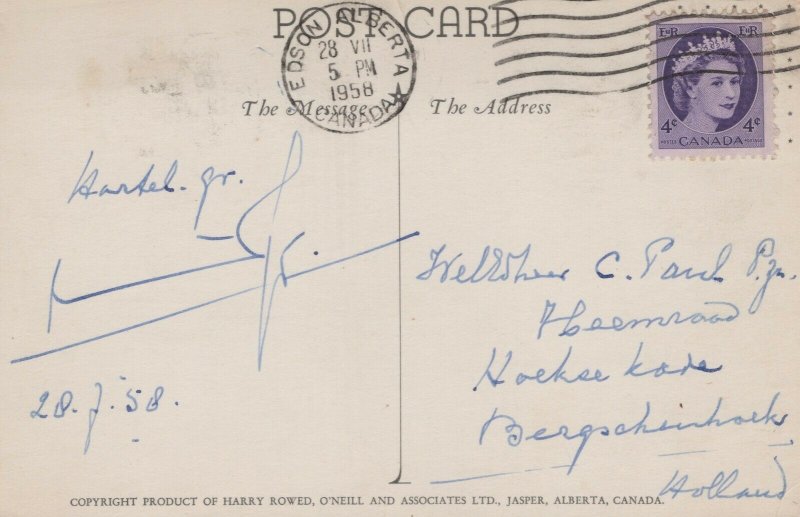 POST CARD
EDSON ALBERTA
28 VII
5 PM
1958
CANADA
The Message
The Address
EIIR EIIR
4¢ 4¢
POSTES CANADA POSTAGE
Hartel. gr.
28.7.58.
WelEdheer C. Paul Pzn.
Heemraad
Hoekse kade
Bergschenhoek
Holland
COPYRIGHT PRODUCT OF HARRY ROWED, O'NEILL AND ASSOCIATES LTD., JASPER, ALBERTA, CANADA.